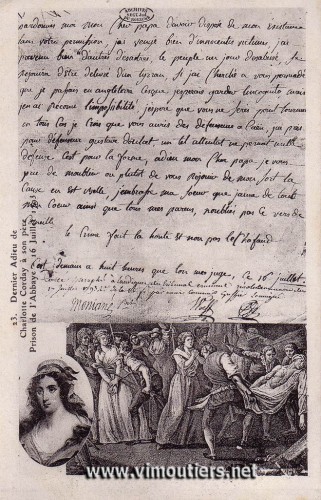 pardonnés moi mon cher papa d'avoir disposé de mon existance
sans votre permission j'ai vengé bien d'innocentes victimes j'ai
prevenu bien d'autres desastres le peuple un jour desabusé, se
rejouira d'être delivré d'un tyran. Si j'ai cherché a vous persuadé
que je passais en angleterre c'est que j'esperais garder l'incognito mais
j'en ai reconnu l'impossibilité. j'espere que vous ne serés point tourmenté
en tous cas je crois que vous auriés des defenseurs a Caen, j'ai pris
pour defenseur gustave doulcet, un tel attentat ne permet nulle
defense c'est pour la forme, adieu mon cher papa je vous
prie de m'oublier ou plutôt de vous rejouir de mon sort la
cause en est belle, j'embrasse ma soeur que j'aime de tout
mon coeur ainsi que tous mes parens, n'oubliés pas ce vers de
corneille
le Crime fait la honte et non pas l'échafaud
c'est demain a huit heures que l'on me juge, ce 16 juillet
23. Dernier Adieu de
Charlotte Corday à son père
Prison de l'Abbaye - 16 Juillet 1793
www.vimoutiers.net